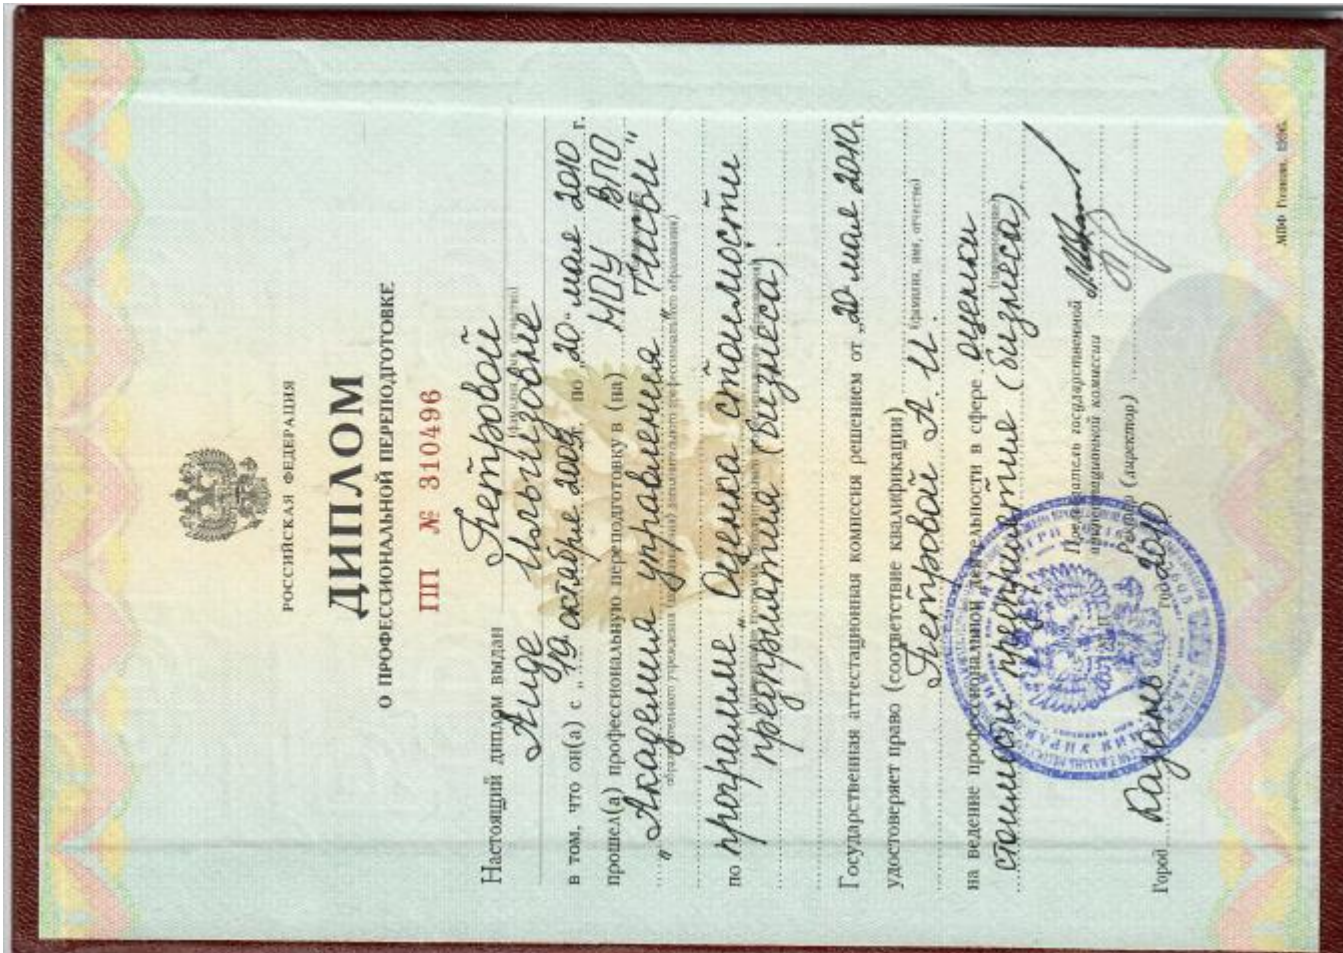 РОССИЙСКАЯ ФЕДЕРАЦИЯ
ДИПЛОМ
О ПРОФЕССИОНАЛЬНОЙ ПЕРЕПОДГОТОВКЕ
ПП № 310496
Настоящий диплом выдан Петровой
(фамилия, имя, отчество)
Аиде Ильгизовне
в том, что он(а) с „19 октября 2009 г. по „20" мая 2010 г.
прошел(а) профессиональную переподготовку в (на) НОУ ВПО
„Академия управления „ТИСБИ"
образовательного учреждения дополнительного профессионального образования)
по программе „Оценка стоимости
предприятия (бизнеса)"
Государственная аттестационная комиссия решением от „20 мая 2010 г.
удостоверяет право (соответствие квалификации)
(фамилия, имя, отчество)
Петровой А. И.
на ведение профессиональной деятельности в сфере оценки
стоимости предприятия (бизнеса)
Председатель государственной
аттестационной комиссии
Ректор (директор)
Город Казань год 2010
МПФ Гознака. 1996.